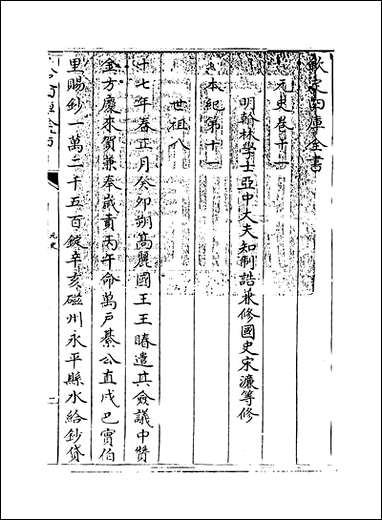 欽定四庫全書
元史卷十一
明翰林學士亞中大夫知制誥兼修國史宋濂等修
本紀第十一
世祖八
十七年春正月癸卯朔髙麗國王王睶遣其僉議中贊
金方慶來賀兼奉歲貢丙午命萬戶綦公直戍巴實伯
里賜鈔一萬二千五百錠辛亥磁州永平縣水給鈔貸
元史